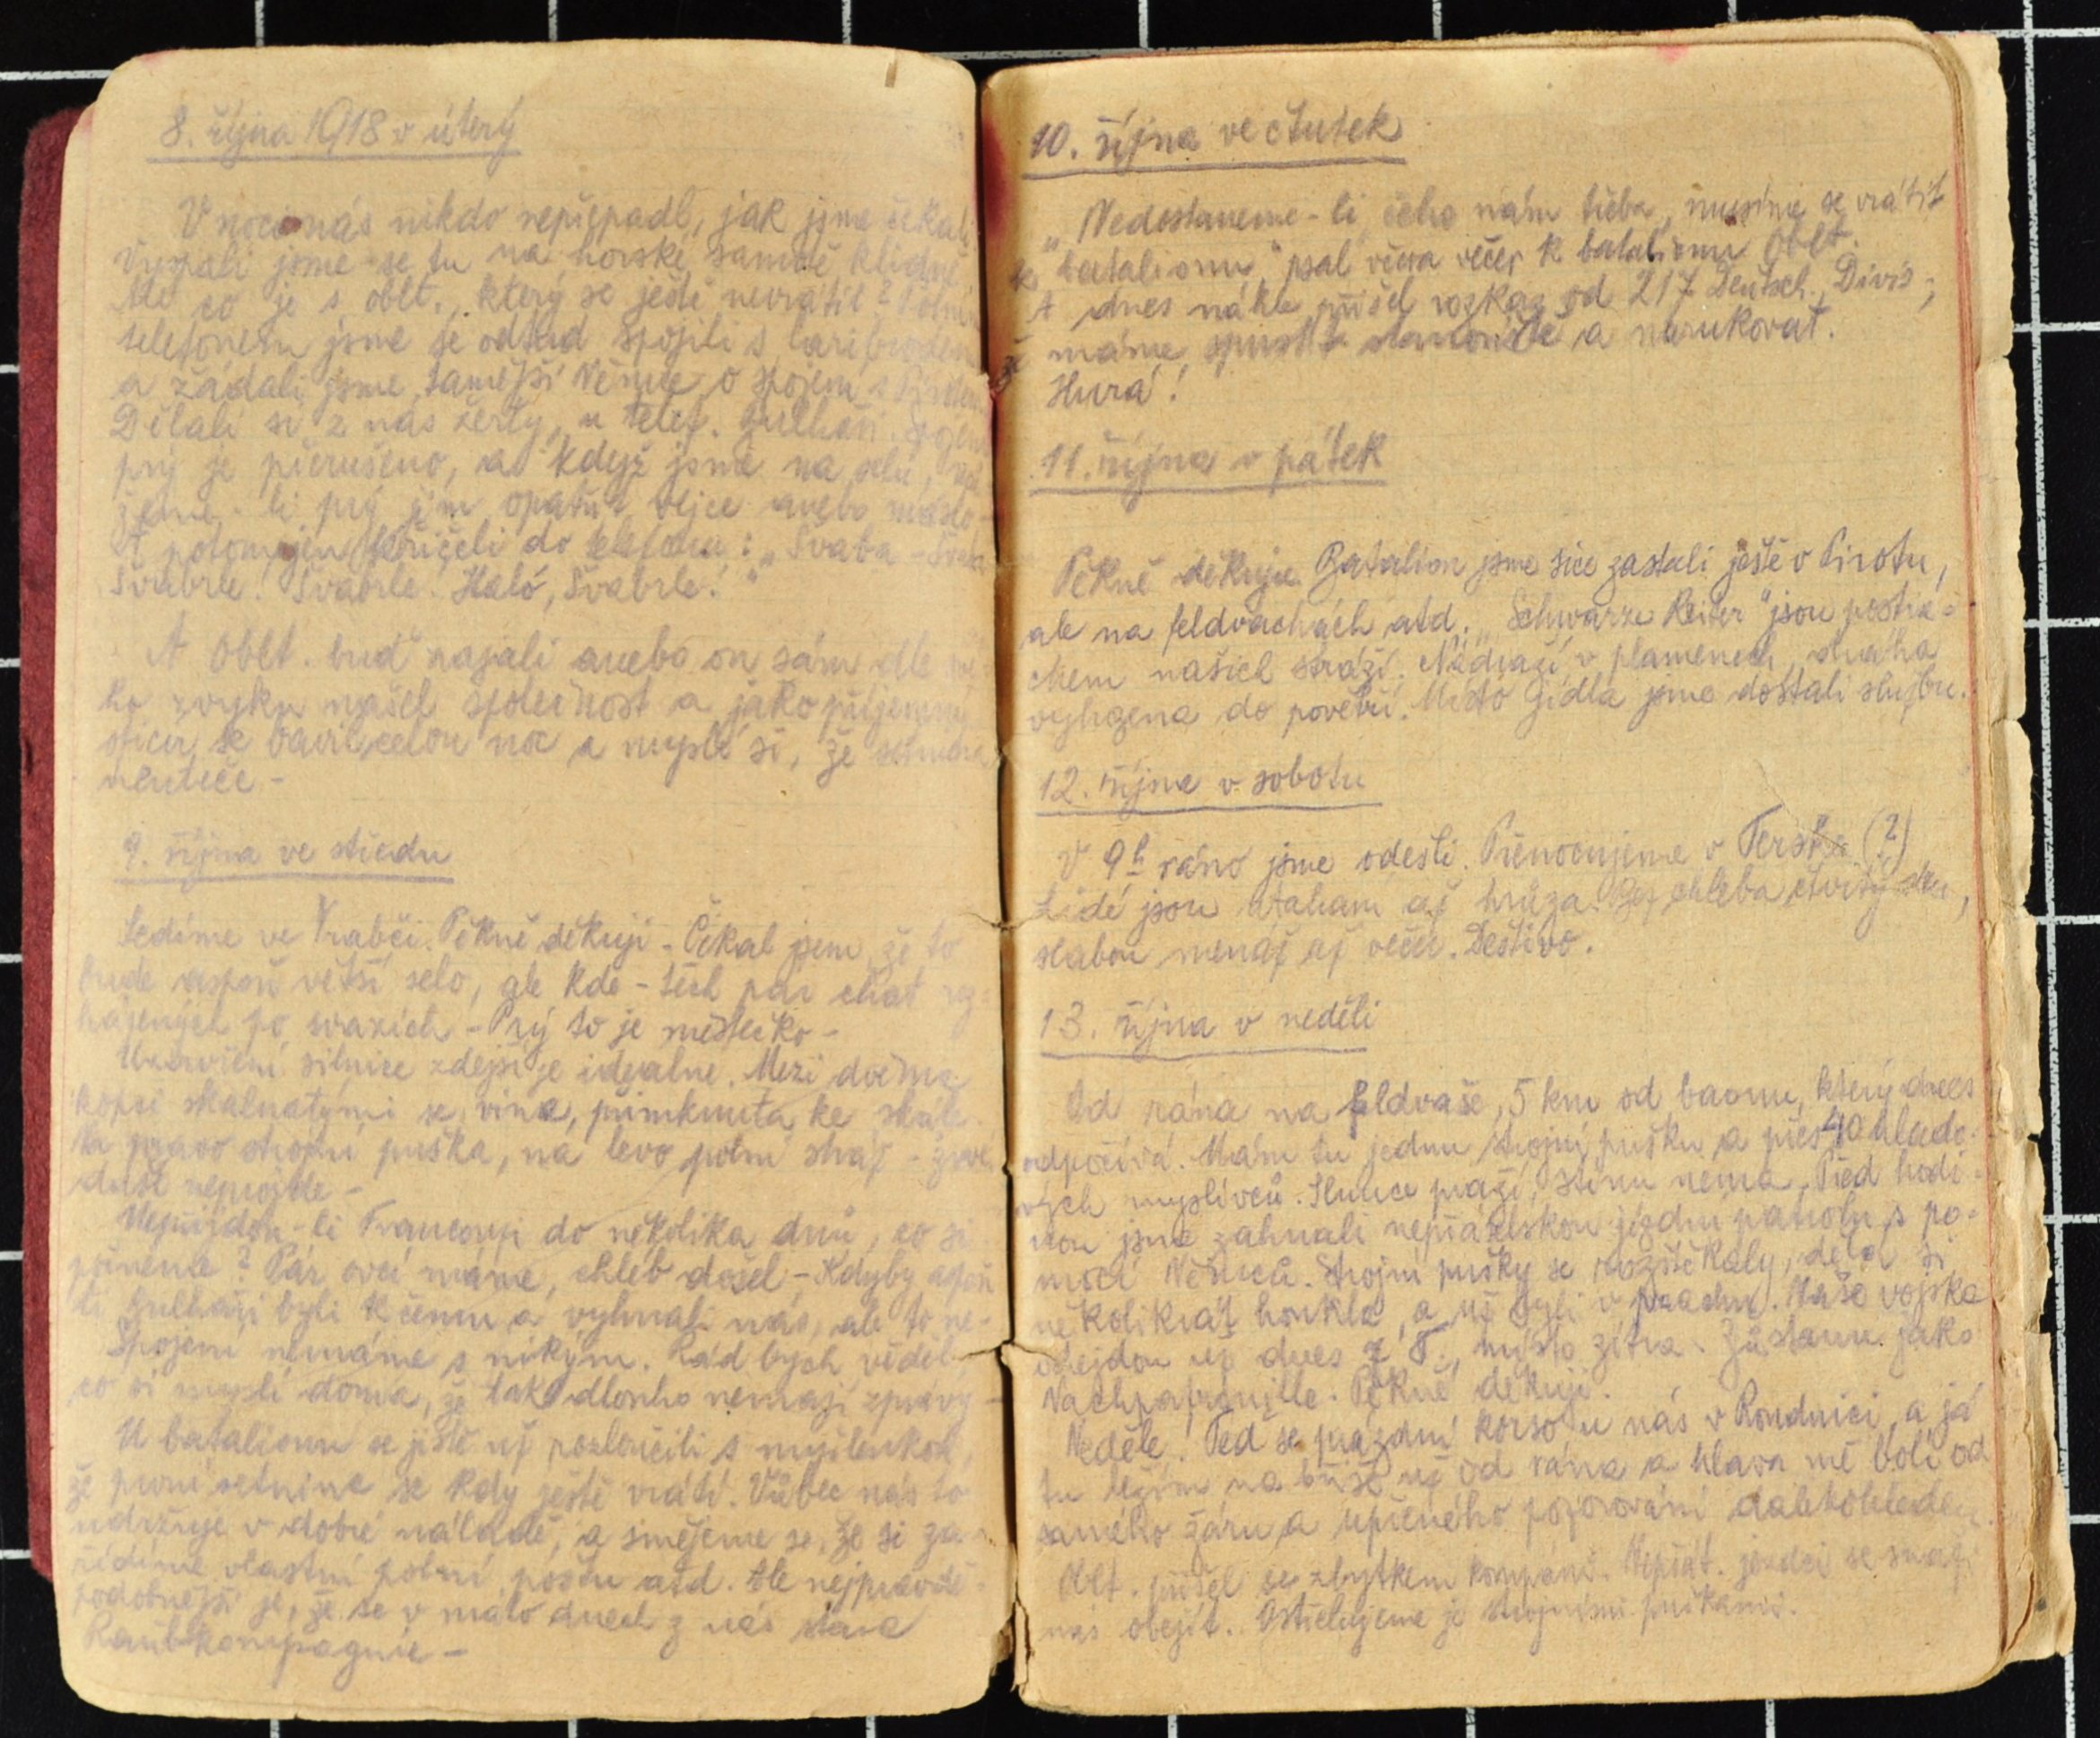 8. října 1918 v úterý
V noci nás nikdo nepřepadl, jak jsme čekali
Vyspali jsme se tu na horské samotě klidně
Ale co je s oblt., který se ještě nevrátil? Polním
telefonem jsme se odtud spojili s Caribrodem
a žádali jsme tamější Němce o spojení s
Dělali si z nás žerty, u telef. Spojení
prý je přerušeno, a když jsme na selu, mů-
žeme-li prý jim opatřit vejce anebo máslo-
A potom jen křičeli do telefonu: „Švaba - Švaba
Švabrle! Švabrle! Haló, Švabrle!"
A Oblt. buď zajali anebo on sám dle své-
ho zvyku našel společnost a jako příjemný
oficír se bavil celou noc a myslí si, že setnina
neuteče -
9. října ve středu
Sedíme ve Vrabči. Pěkně děkuji - Čekal jsem, že to
bude aspoň větší selo, ale kde - těch pár chat roz-
hájených po svazích - Prý to je městečko -
Uzavření silnice zdejší je idealne. Mezi dvěma
kopci skalnatými se vine, přimknuta ke skále.
Na pravo strojní puška, na levo polní stráž - živá
duše neprojde -
Nepřijdou-li Francouzi do několika dnů, co si
počneme? Pár ovcí máme, chléb došel - Kdyby aspoň
ti byli k čemu a vyhnali nás, ale to ne-
Spojení nemáme s nikým. Rád bych věděl,
co si myslí doma, že tak dlouho nemají zprávy -
U batalionu se jistě už rozloučili s myšlenkou,
že první setnina se kdy ještě vrátí. Vůbec nás to
udržuje v dobré náladě, a smějeme se, že si za-
řídíme vlastní polní poštu atd. Ale nejpravdě-
podobnější je, že se v málo dnech z nás stane
Raubkompagnie -
10. října ve čtvrtek
„Nedostaneme-li čeho nám třeba, musíme se vrátit
k batalionu," psal včera večer k batalionu Oblt.
A dnes náhle přišel rozkaz od 217 Deutsch. Divis;
že máme opustit stanoviště a narukovat.
Hurá!
11. října v pátek
Pěkně děkuju. Batalion jsme sice zastali ještě v Pirotu,
ale na feldvachách atd. „Schwarze Reiter" jsou postra-
chem našich stráží. Nádraží v plamenech, dráha
vyhozena do povětří. Místo jídla jsme dostali službu.
12. října v sobotu
V 9h ráno jsme odešli. Přenocujeme v Terska (?)
Lidé jsou utahaní až hrůza. Bez chleba čtvrtý den,
slabou menáž až večer. Deštivo.
13. října v neděli
Od rána na feldvaše, 5 km od baonu, který dnes
odpočívá. Mám tu jednu strojní pušku a přes 40 hlado-
vých myslivců. Slunce praží, stínu nemá. Před hodi-
nou jsme zahnali nepřátelskou jízdní patrolu s po-
mocí Němců. Strojní pušky se rozštěkaly, děla si
několikrát houkla, a už byli v prachu. Naše vojska
odejdou už dnes z B., místo zítra. Zůstanu jako
Nachpatrouille. Pěkně děkuji.
Neděle! Teď se prázdní korso tu nás v Roudnici, a já
tu ležím na břiše už od rána a hlava mě bolí od
samého žáru a upřeného pozorování dalekohledem.
Oblt. přišel se zbytkem kompanie. Nepřát. jezdci se snaží
nás obejít. Ostřelujeme je strojními puškami.